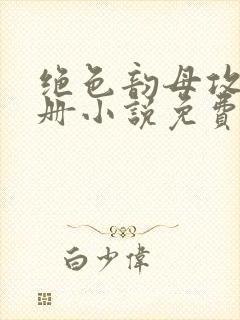 绝色韵母攻
册小说免费
白少伟